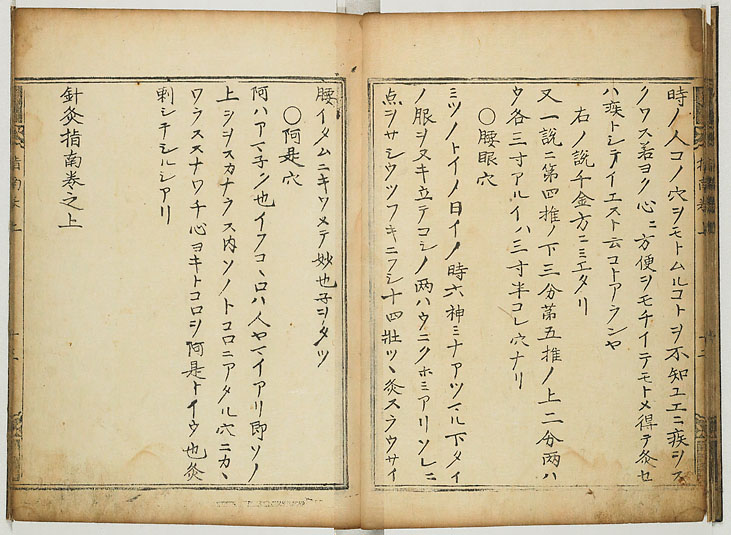 時ノ人コノ穴ヲモトムルコトヲ不知ユエニ疾ヲノ
クワス若ヨク心ニ方便ヲモチイテモトメ得テ灸セ
ハ疾トシテイエスト云コトアランヤ
右ノ説千金方ニミエタリ
又一説ニ第四推ノ下三分第五推ノ上二分両ハ
ウ各三寸アルイハ三寸半コレ穴ナリ
〇腰眼穴
ミツノトイノ日イノ時六神ミナアツマル下タイ
ノ服ヲヌキ立テコシノ両ハウニクホミアリソレニ
点ヲサシウツフキニフシ十四壮ツヽ灸スラウサイ
腰イタムニキワメテ妙也子ヲタツ
〇阿是穴
阿ハアマ子シ也イフコヽロハ人ヤマイアリ即ソノ
上ヲヲスカナラス内ソノトコロニアタル穴ニカヽ
ワラススナワチ心ヨキトコロヲ阿是トイウ也灸
刺シテシルシアリ
針灸指南巻之上
指南巻上